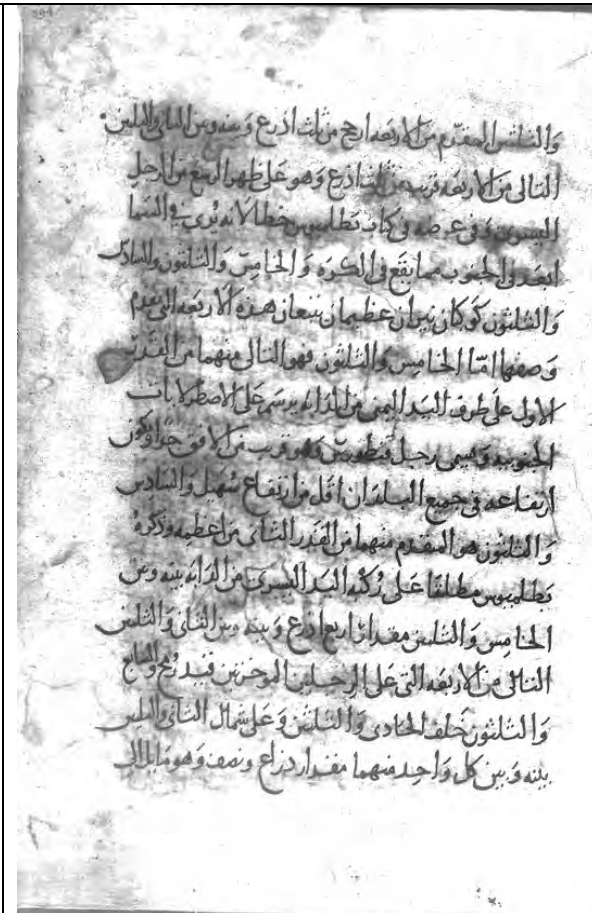 والثلثين المتقدم من الاربعه ارجح من ثلث اذرع وبينه وبين الثانى والثلثين
التالى من الاربعه قريب من ثلث اذرع وهو على ظهر الرسغ من الرجل
اليسرى وفى عرضه فى كتاب بطلميوس خطا لانه يرى فى السما
ابعد فى الجنوب مما يقع فى الكره والخامس والثلثون والسادس
والثلثون كوكبان نيران عظيمان يتبعان هذه الاربعه التى تقدم
وصفها امّا الخامس والثلثون فهو التالى منهما من القدر
الاول على طرف اليد اليمنى من الدابه يرسم على الاصطرلابات
الجنوبيه ويسمى رجل قنطورس وهو قريب من الافق جدا ويكون
ارتفاعه فى جميع البلدان اقل من ارتفاع سهيل والسادس
والثلثون هو المتقدم منهما من القدر الثانى من اعظمه وذكره
بطلميوس مطلقا على ركبه اليد اليسرى من الدابه بينه وبين
الخامس والثلثين مقدار اربع اذرع وبينه وبين الثانى والثلثين
التالى من الاربعه التى على الرجلين الموخرتين قيد رمح والسابع
والثلثون خلف الحادى والثلثين وعلى شمال الثانى والثلثين
بينه وبين كل واحد منهما مقدار ذراع ونصف وهو مايل الى